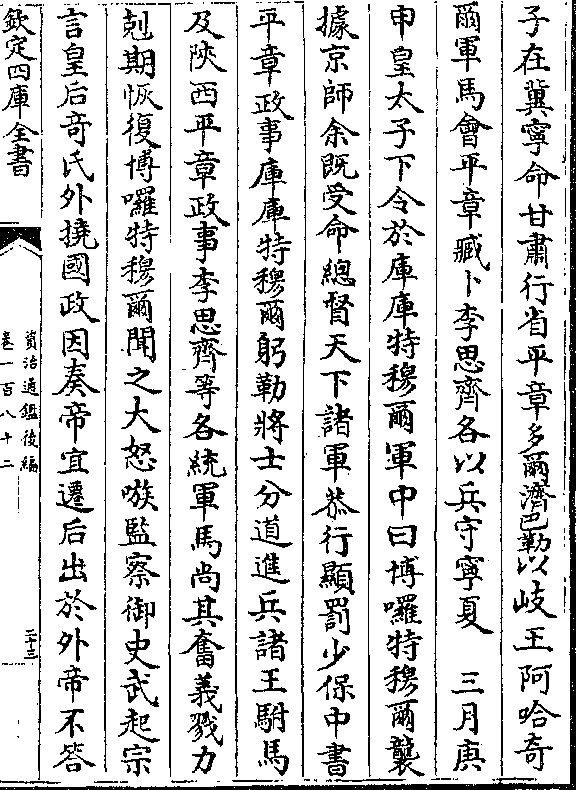 子在冀寧命甘肅行省平章多爾濟巴勒以岐王阿哈奇
爾軍馬會平章臧卜李思齊各以兵守寧夏　三月庚
申皇太子下令於庫庫特穆爾軍中曰博囉特穆爾襲
據京師余既受命總督天下諸軍恭行顯罰少保中書
平章政事庫庫特穆爾躬勒將士分道進兵諸王駙馬
及陜西平章政事李思齊等各統軍馬尚其奮義戮力
剋期恢復博囉特穆爾聞之大怒嗾監察御史武起宗
言皇后奇氏外撓國政因奏帝宜遷后出於外帝不答
欽定四庫全書
資治通鑑後編
卷一百八十二
二十三